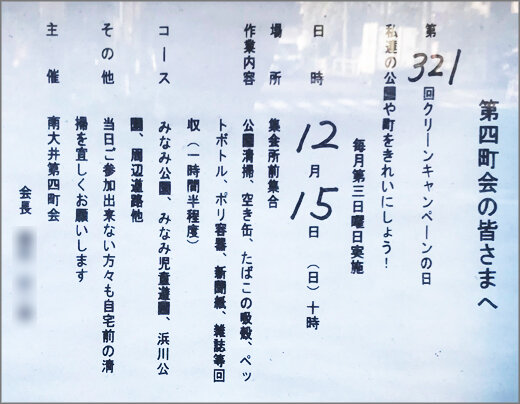 第四町会の皆さまへ
第321回クリーンキャンペーンの日
私達の公園や町をきれいにしょう!
毎月第三日曜日実施
日時 12月15日(日)十時
場所 集会所前集合
作業内容 公園清掃、空き缶、たばこの吸殻、ペッ
トボトル、ポリ容器、新聞紙、雑誌等回
収(一時間半程度)
コース みなみ公園、みなみ児童遊園、浜川公
園、周辺道路他
その他 当日ご参加出来ない方々も自宅前の清
掃を宜しくお願いします
主催 南大井第四町会
会長